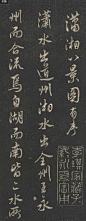 瀟湘八景圖有序
瀟水出道州湘水出全州至永
州而合流焉自湖而南皆二水所